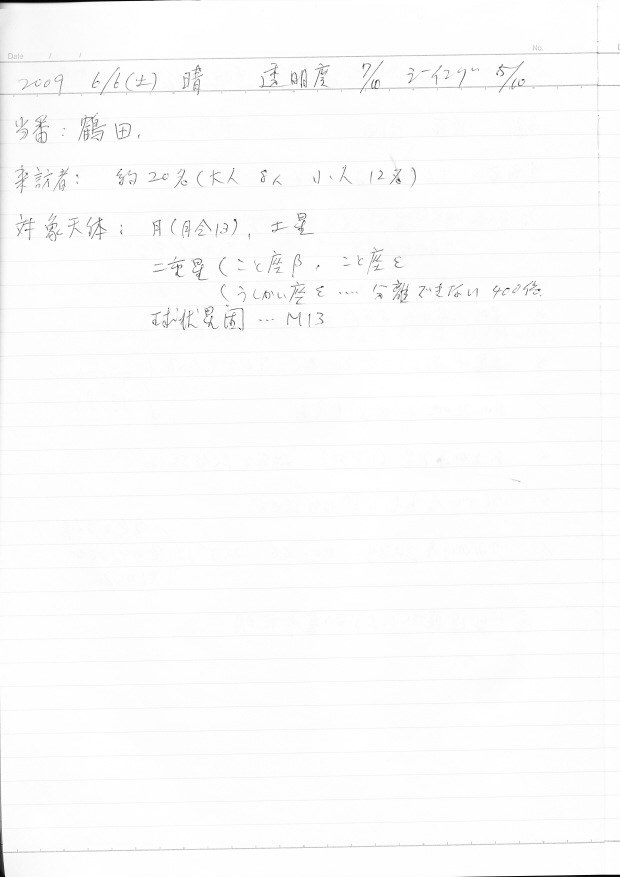 Date / /
No.
2009 6/6(土) 晴 透明度 7/10 シーイング 5/10
当番: 鶴田.
来訪者: 約20名(大人 8人 小人 12名)
対象天体: 月(月令13), 土星
二重星(こと座β, こと座ε
(うしかい座ε ‥‥ 分離できない 400倍.
球状星団 ‥‥ M13